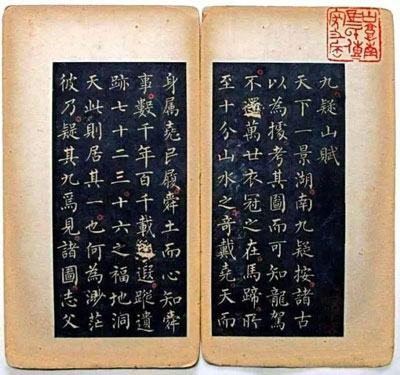 九疑山賦
天下一景湖南九疑按諸古
以為據考其圖而可知龍駕
不還萬世衣冠之在馬蹄所
至十分山水之奇戴堯天而
身屬堯民履舜土而心知舜
事數千年百千載遐蹤遺
跡七十二三十六之福地洞
天此則居其一也何為渺茫
彼乃疑其九焉見諸圖志父